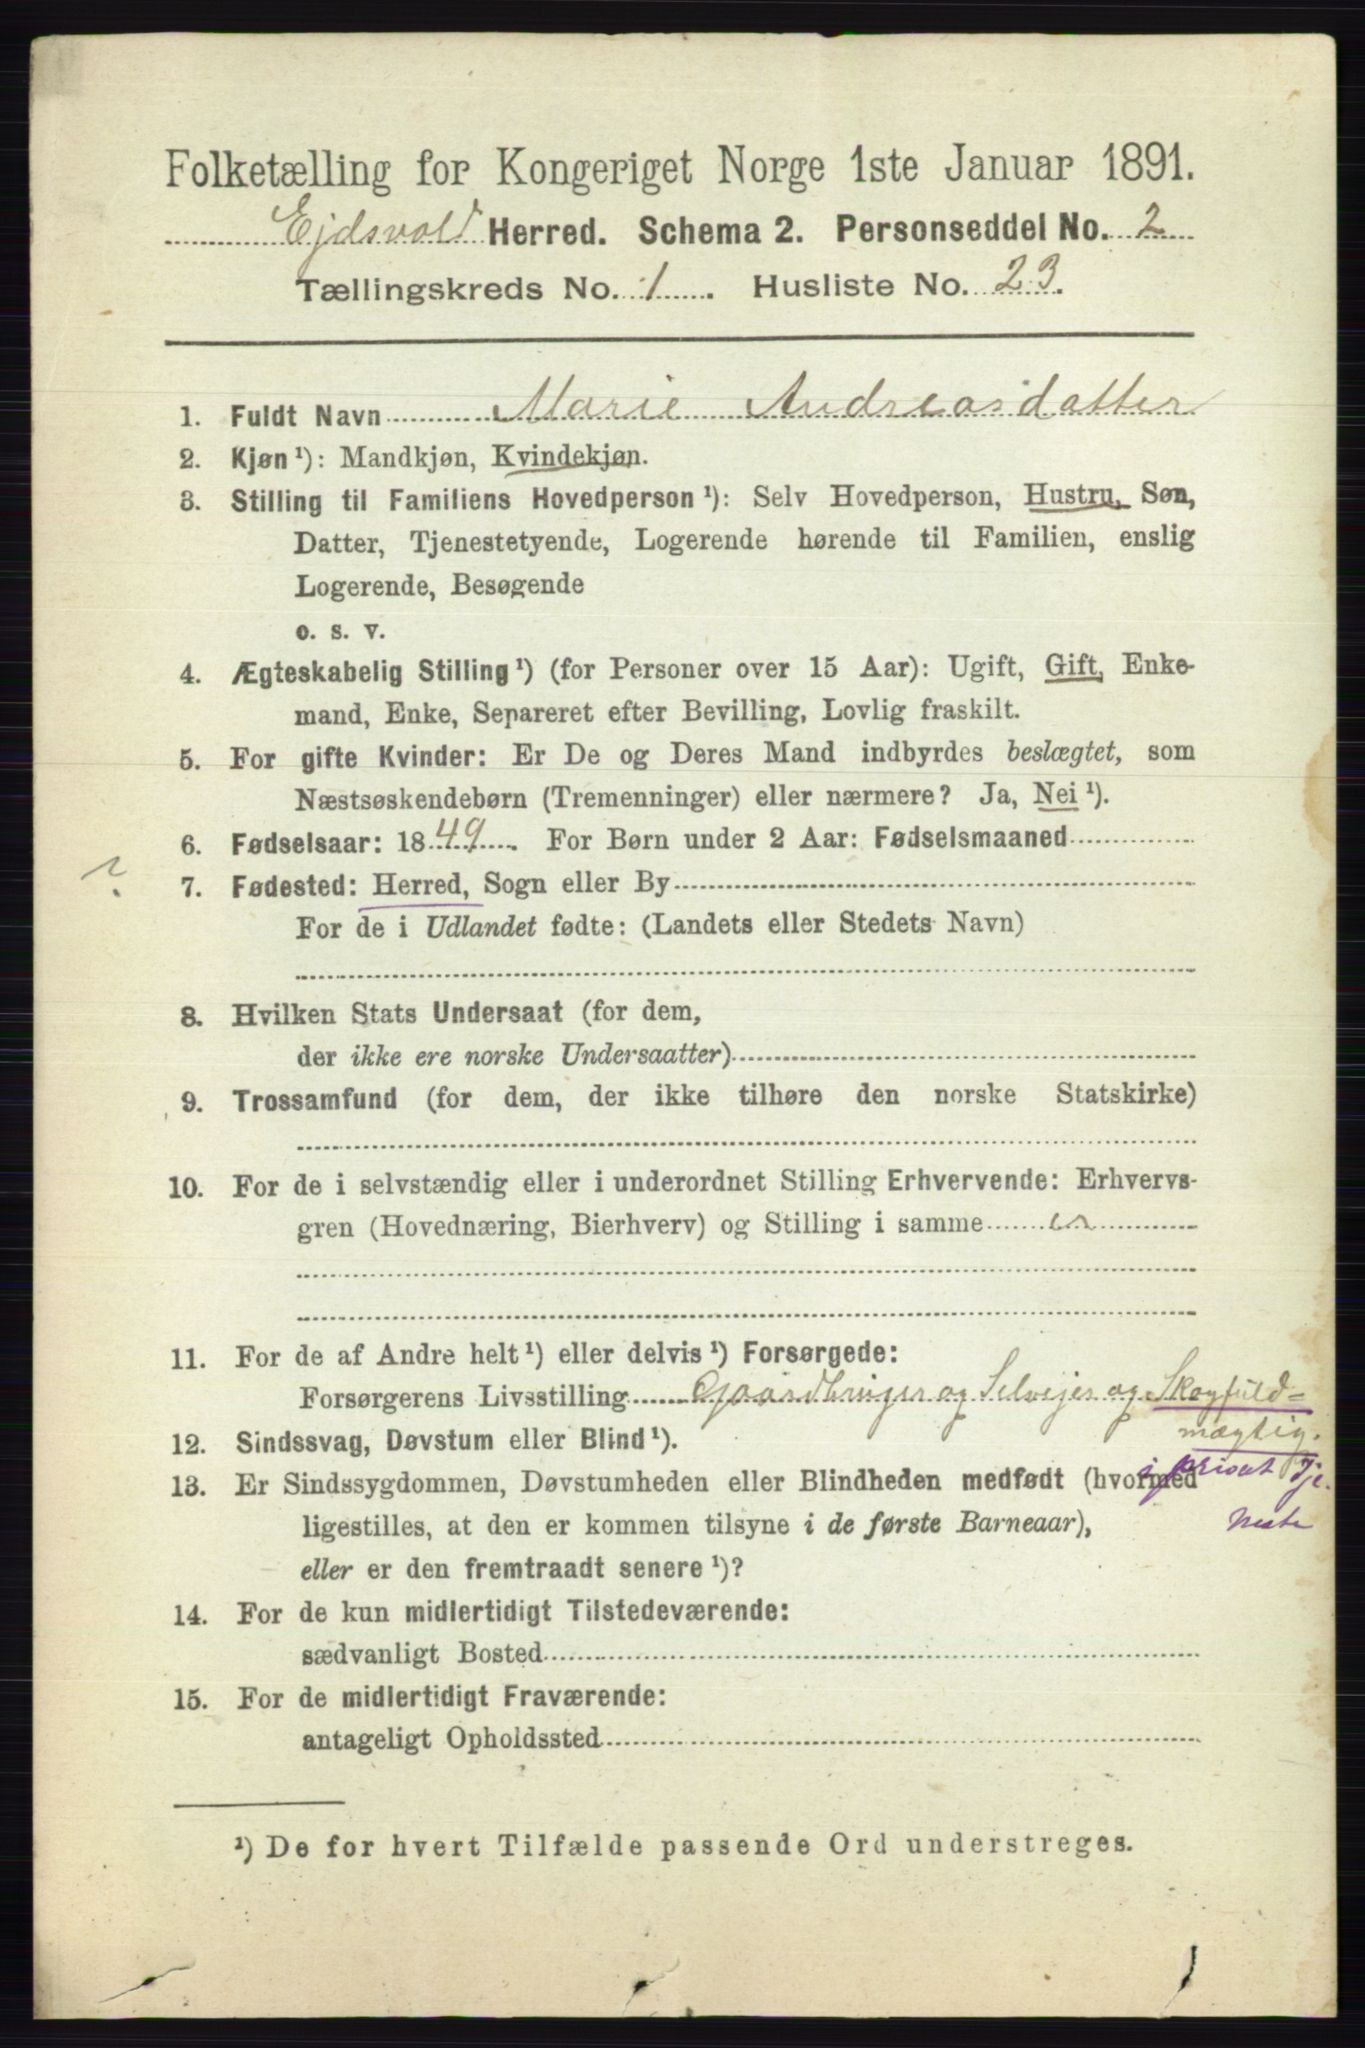 Folketælling for Kongeriget Norge 1ste Januar 1891.
Ejdsvold Herred. Schema 2. Personseddel No. 2
Tællingskreds No. 1. Husliste No. 23.
1. Fuldt Navn Marie Andreasdatter
2. Kjøn ¹): Mandkjøn, Kvindekjøn.
3. Stilling til Familiens Hovedperson ¹): Selv Hovedperson, Hustru, Søn,
Datter, Tjenestetyende, Logerende hørende til Familien, enslig
Logerende, Besøgende
o. s. v.
4. Ægteskabelig Stilling ¹) (for Personer over 15 Aar): Ugift, Gift, Enke-
mand, Enke, Separeret efter Bevilling, Lovlig fraskilt.
5. For gifte Kvinder: Er De og Deres Mand indbyrdes beslægtet, som
Næstsøskendebørn (Tremenninger) eller nærmere? Ja, Nei ¹).
6. Fødselsaar: 1849. For Børn under 2 Aar: Fødselsmaaned
?
7. Fødested: Herred, Sogn eller By
For de i Udlandet fødte: (Landets eller Stedets Navn)
8. Hvilken Stats Undersaat (for dem,
der ikke ere norske Undersaatter)
9. Trossamfund (for dem, der ikke tilhøre den norske Statskirke)
10. For de i selvstændig eller i underordnet Stilling Erhvervende: Erhvervs-
gren (Hovednæring, Bierhverv) og Stilling i samme
11. For de af Andre helt ¹) eller delvis ¹) Forsørgede:
Forsørgerens Livsstilling Gaardbruger og Selvejer og Skogfuld=
mægtig.
12. Sindssvag, Døvstum eller Blind ¹).
i privat Tje.
neste
13. Er Sindssygdommen, Døvstumheden eller Blindheden medfødt (hvormed
ligestilles, at den er kommen tilsyne i de første Barneaar),
eller er den fremtraadt senere ¹)?
14. For de kun midlertidigt Tilstedeværende:
sædvanligt Bosted
15. For de midlertidigt Fraværende:
antageligt Opholdssted
¹) De for hvert Tilfælde passende Ord understreges.